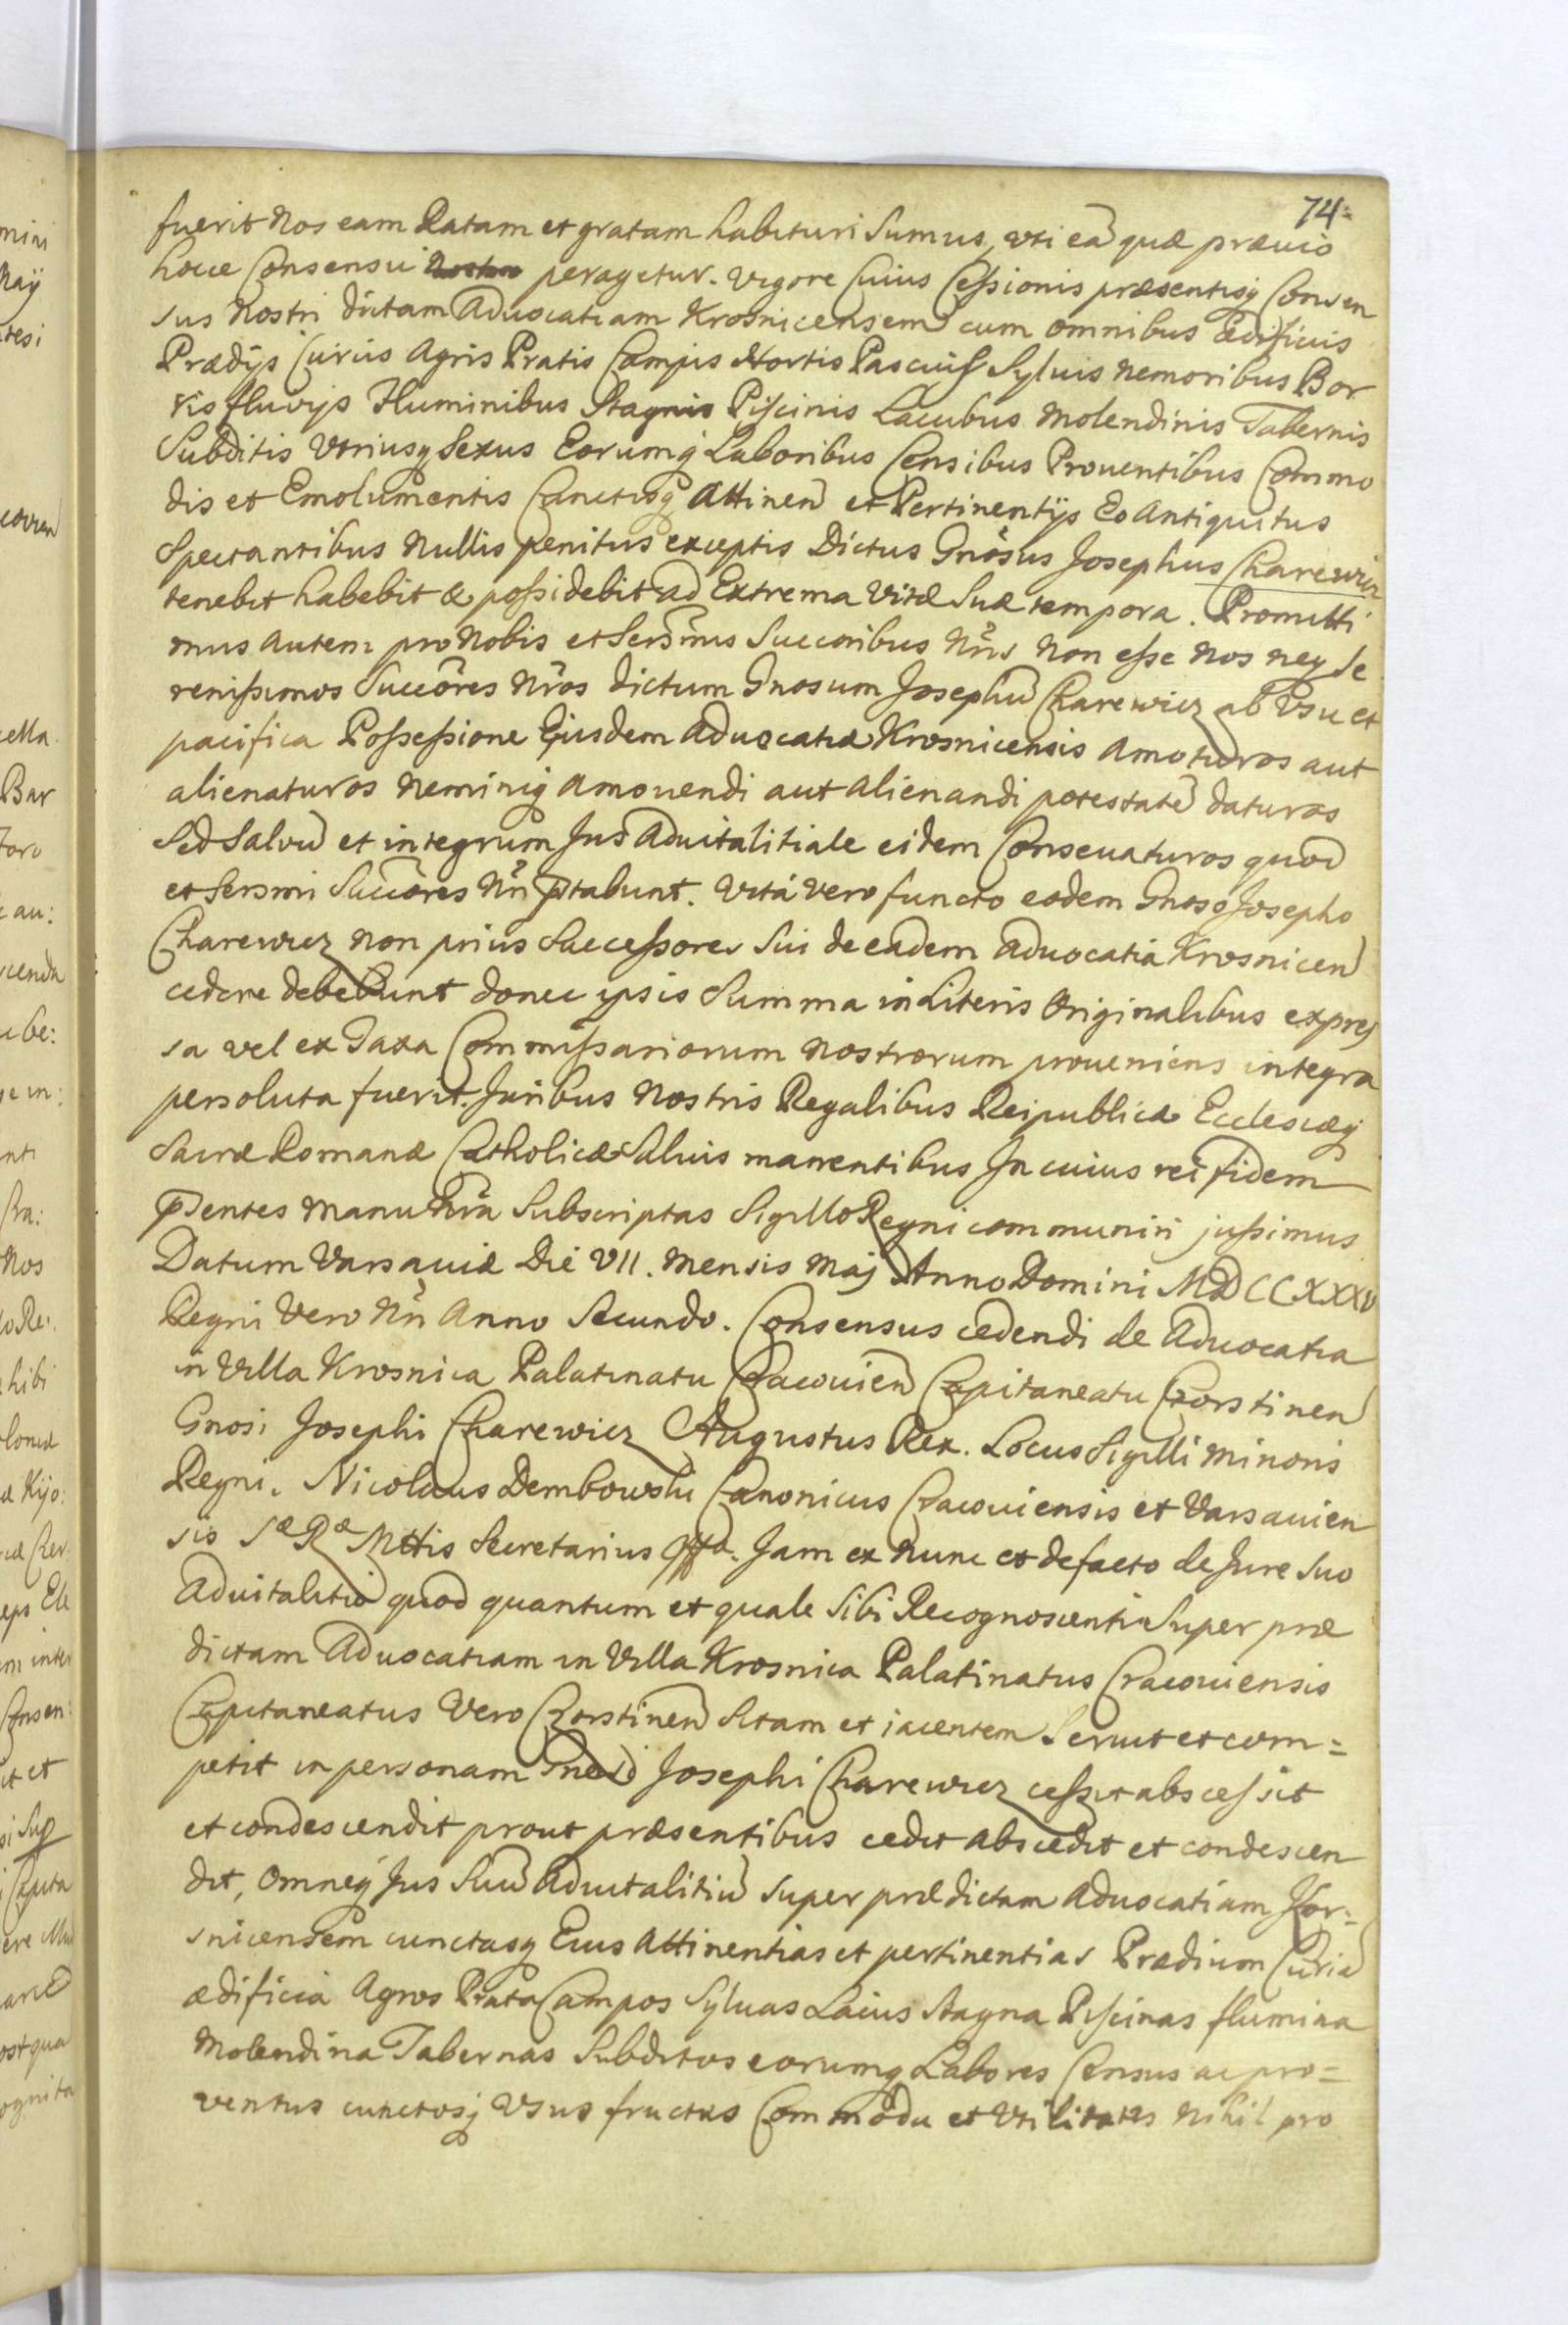 74
fuerit Nos eam Ratam et gratam habituri sumus, uti ea quæ præuio
hocce Consensu peragetur. Vigore Cuius Cessionis præsentisq Consen
sus Nostri dictam Aduocatiam Krosnicensem cum omnibus ædificiis
Prædijs Curiis Agris Pratis Campis Hortis Pascuis Syluis Nemoribus Bor
ris fluvijs Fluminibus Stagnis Piscinis Lacubus Molendinis Tabernis
Subditis Utriusq Sexus Eorumq Laboribus Censibus Prouentibus Commo
dis et Emolumentis Cunctisq Attinen et Pertinentijs Eo Antiquitus
Spectantibus Nullis penitus exceptis Dictus Gnosus Josephus Charewicz
tenebit habebit & possidebit ad Extrema Vitæ Suæ tempora. Promitti
mus autem pro Nobis et Sermis Succoribus Nris Non esse Nos neq Se
renissimos Succores Nros dictum Gnosum Josephu Charewicz ab Usu et
pacifica Possessione Ejusdem Aduocatiæ Krosnicensis Amoturos aut
alienaturos Neminiq Amouendi aut Alienandi potestate daturos
Sed Salvu et integrum Jus Aduitalitiale eidem Conseruaturos quod
et Sersmi Succores Nri pstabunt. Vitá vero functo eodem Gnoso Josepho
Charewicz non prius Successores Sui de eadem Aduocatia Krosnicen
cedere debebunt donec ipsis Summa in Literis Originalibus expres
sa vel ex Taxa Commissariorum Nostrorum proueniens integra
persoluta fuerit. Juribus Nostris Regalibus Reipublicæ Ecclesiæq
Sacræ Romanæ Catholicæ Saluis manentibus In cuius rei fidem
pntes Manu Nra Subscriptas Sigillo Regni communiri jussimus
Datum Varsauiæ Die VII. Mensis Maj Anno Domini MDCCXXXV
Regni Vero Nri Anno Secundo. Consensus cedendi de Aduocatia
in Villa Krosnica Palatinatu Cracouien Capitaneatu Czorstinen
Gnosi Josephi Charewicz Augustus Rex. Locus Sigilli Minoris
Regni. Nicolaus Dembowski Canonicus Cracouiensis et Varsauien
sis Sæ Ræ Mttis Secretarius Jam ex Nunc et defacto de Jure Suo
Aduitalitio quod quantum et quale Sibi Recognoscenti Super præ
dictam Aduocatiam in Villa Krosnica Palatinatus Cracouiensis
Capitaneatus Vero Czorstinen Sitam et iacentem Seruit et com=
petit in personam Gnosi Josephi Charewicz cessit abscessit
et condescendit prout præsentibus cedit abscedit et condescen
dit, Omneq Jus Suu Aduitalitiu super prædictam Aduocatiam Kor=
snicensem cunctasq Eius Attinentias et pertinentias Prædium Curia
ædificia Agros Prata Campos Syluas Lacus Stagna Piscinas flumina
Molendina Tabernas Subditos eorumq Labores Census ac pro=
ventus cunctosq Usus fructus Commoda et Utilitates Nihil pro